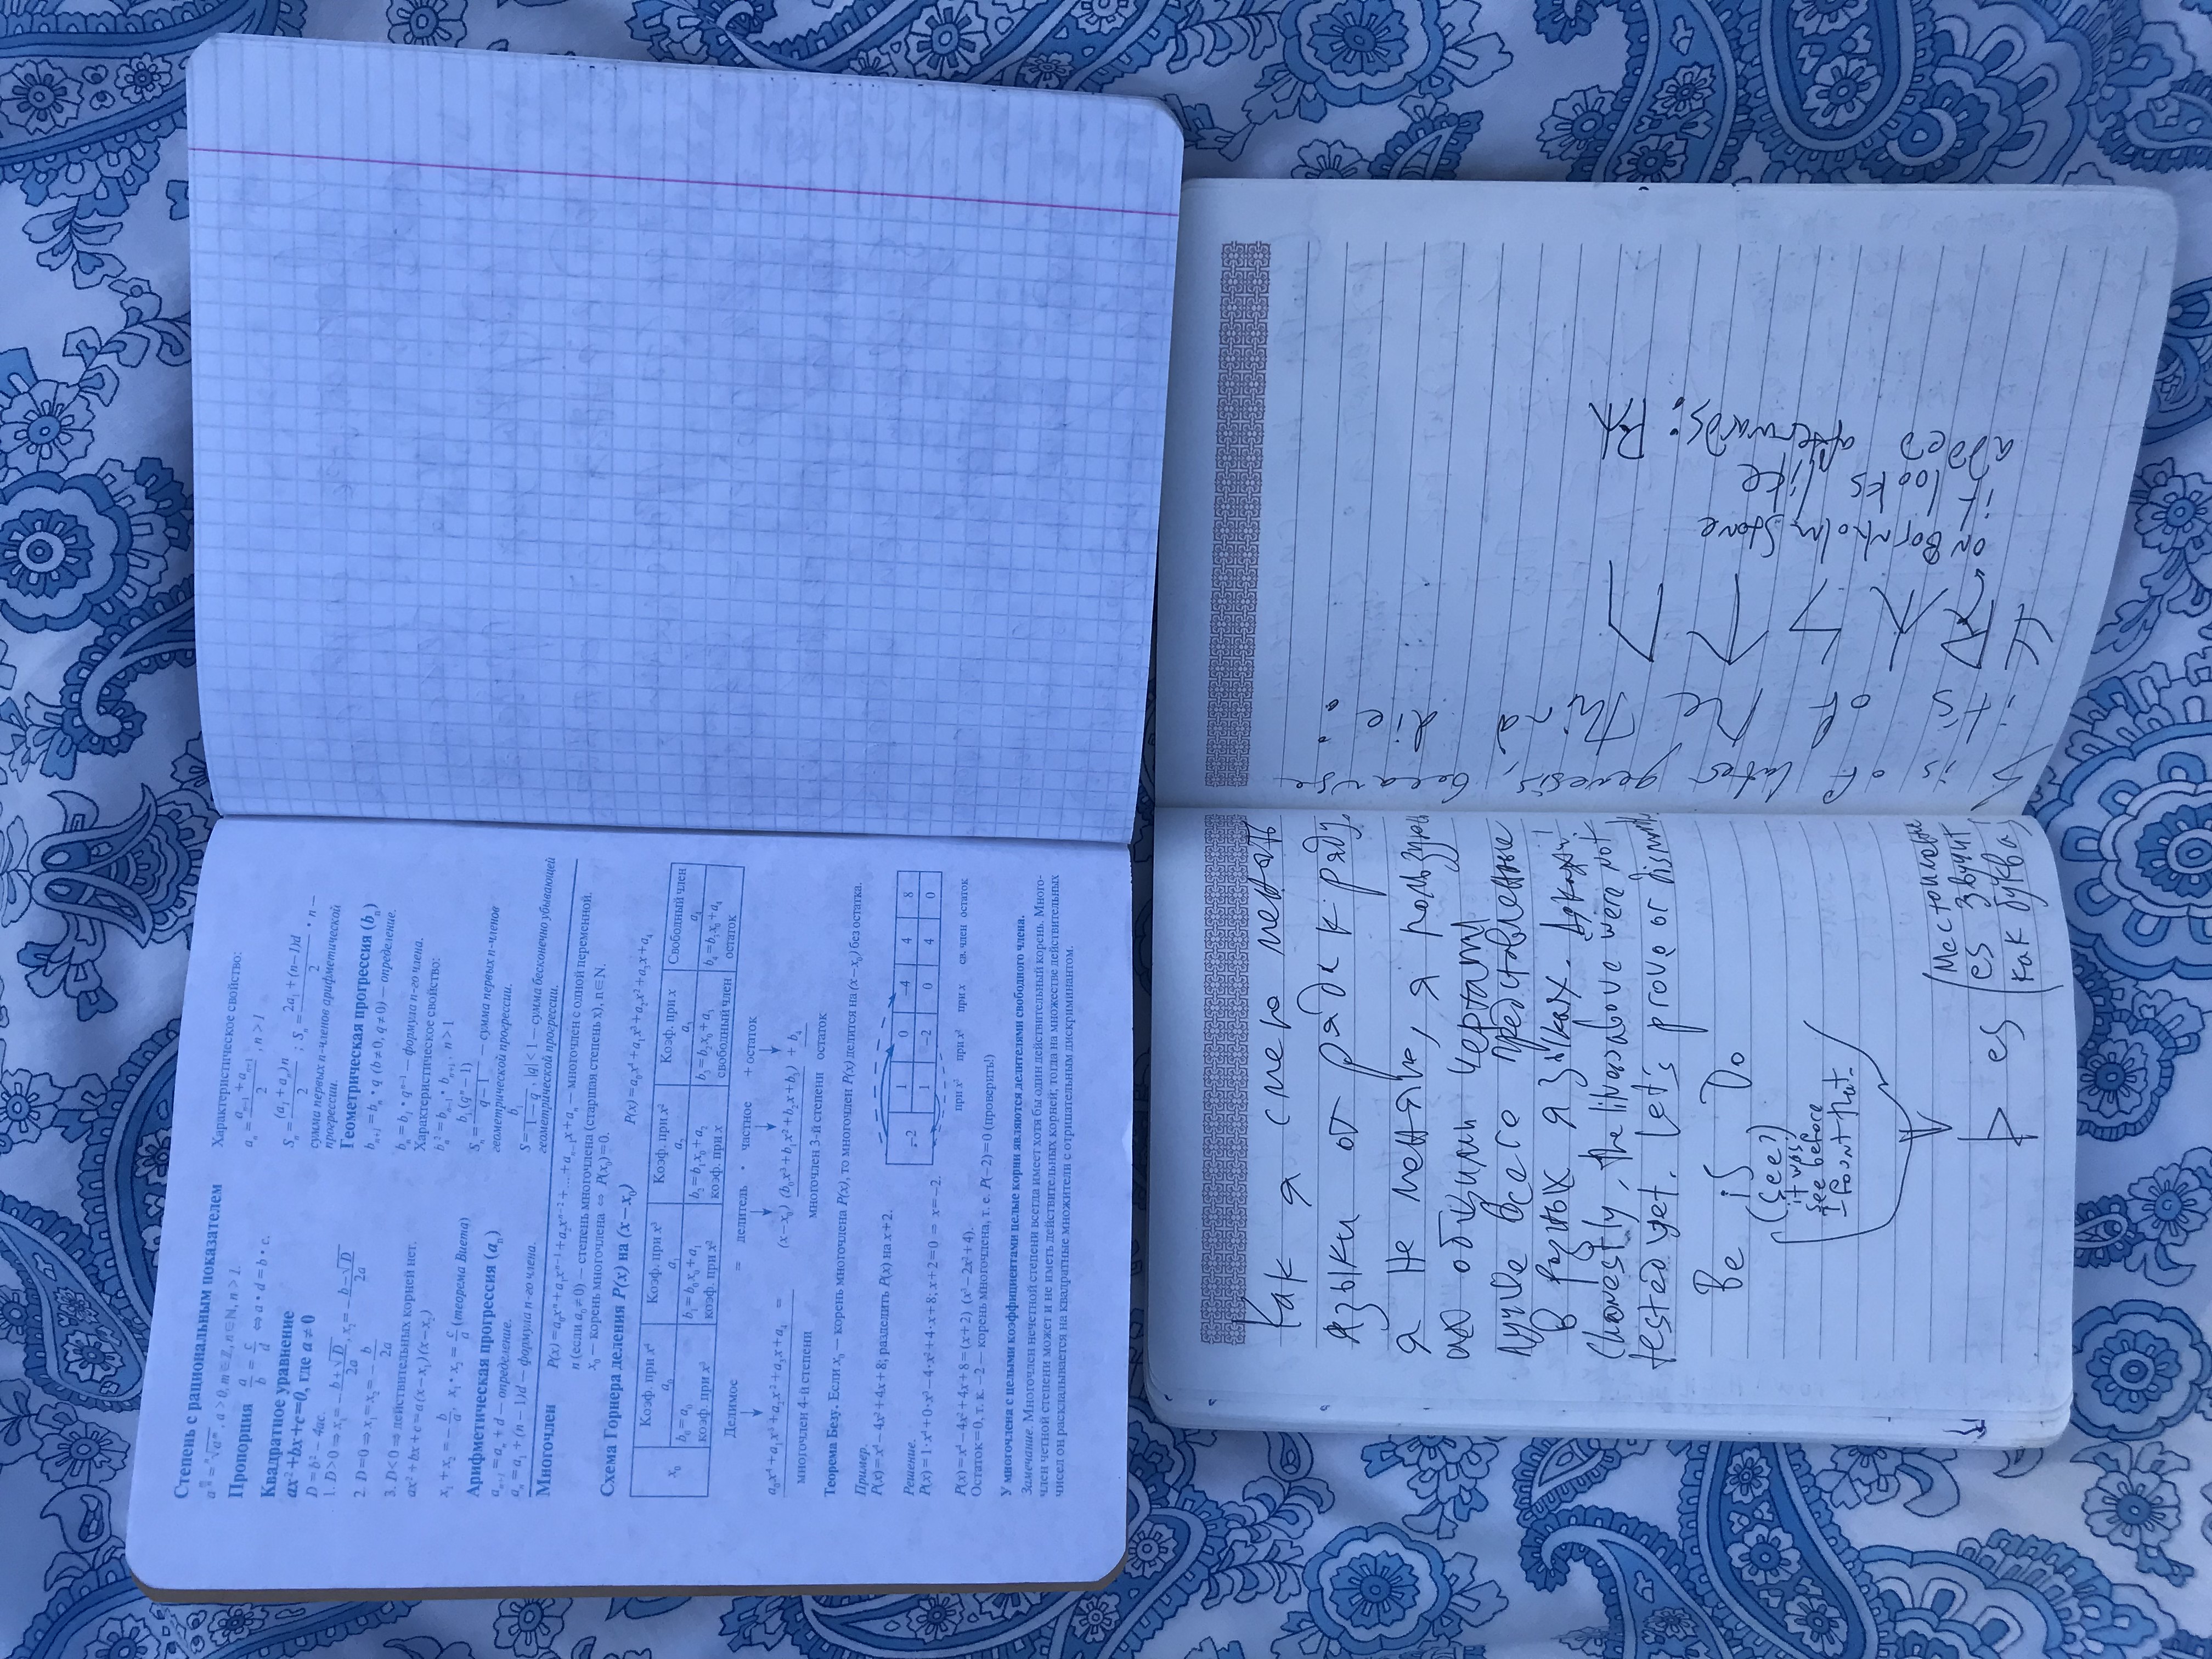 Степень с рациональным показателем
a^(m/n) = ⁿ√aᵐ, a > 0, m ∈ ℤ, n ∈ ℕ, n > 1.
Пропорция a/b = c/d ⇔ a • d = b • c.
Квадратное уравнение
ax² + bx + c = 0, где a ≠ 0
D = b² − 4ac.
1. D > 0 ⇒ x₁ = −(b + √D)/2a, x₂ = −(b − √D)/2a
2. D = 0 ⇒ x₁ = x₂ = −b/2a
3. D < 0 ⇒ действительных корней нет.
ax² + bx + c = a(x − x₁)(x − x₂)
x₁ + x₂ = −b/a, x₁ • x₂ = c/a (теорема Виета)
Арифметическая прогрессия (aₙ)
aₙ₊₁ = aₙ + d — определение.
aₙ = a₁ + (n − 1)d — формула n-го члена.
Характеристическое свойство:
aₙ = (aₙ₋₁ + aₙ₊₁)/2, n > 1
Sₙ = (a₁ + aₙ)n/2 ; Sₙ = (2a₁ + (n−1)d)/2 • n —
сумма первых n-членов арифметической
прогрессии.
Геометрическая прогрессия (bₙ)
bₙ₊₁ = bₙ • q (b ≠ 0, q ≠ 0) — определение.
bₙ = b₁ • qⁿ⁻¹ — формула n-го члена.
Характеристическое свойство:
bₙ² = bₙ₋₁ • bₙ₊₁, n > 1
Sₙ = b₁(qⁿ − 1)/(q − 1) — сумма первых n-членов
геометрической прогрессии.
S = b₁/(1 − q), |q| < 1 — сумма бесконечно убывающей
геометрической прогрессии.
Многочлен P(x) = a₀xⁿ + a₁xⁿ⁻¹ + a₂xⁿ⁻² + ... + aₙ₋₁x + aₙ — многочлен с одной переменной.
n (если a₀ ≠ 0) — степень многочлена (старшая степень x), n ∈ N.
x₀ — корень многочлена ⇔ P(x₀) = 0.
Схема Горнера деления P(x) на (x − x₀) P(x) = a₀x⁴ + a₁x³ + a₂x² + a₃x + a₄
x₀ Коэф. при x⁴ Коэф. при x³ Коэф. при x² Коэф. при x Свободный член
a₀ a₁ a₂ a₃ a₄
b₀ = a₀ b₁ = b₀x₀ + a₁ b₂ = b₁x₀ + a₂ b₃ = b₂x₀ + a₃ b₄ = b₃x₀ + a₄
коэф. при x³ коэф. при x² коэф. при x свободный член остаток
Делимое = делитель • частное + остаток
a₀x⁴ + a₁x³ + a₂x² + a₃x + a₄ = (x − x₀) (b₀x³ + b₁x² + b₂x + b₃) + b₄
многочлен 4-й степени многочлен 3-й степени остаток
Теорема Безу. Если x₀ — корень многочлена P(x), то многочлен P(x) делится на (x − x₀) без остатка.
Пример.
P(x) = x⁴ − 4x² + 4x + 8; разделить P(x) на x + 2.
Решение.
P(x) = 1·x⁴ + 0·x³ − 4·x² + 4·x + 8; x + 2 = 0 ⇒ x = −2.
−2 1 0 −4 4 8
1 −2 0 4 0
при x³ при x² при x св. член остаток
P(x) = x⁴ − 4x² + 4x + 8 = (x + 2) (x³ − 2x² + 4).
Остаток = 0, т. к. −2 — корень многочлена, т. е. P(−2) = 0 (проверить!)
У многочлена с целыми коэффициентами целые корни являются делителями свободного члена.
Замечание. Многочлен нечетной степени всегда имеет хотя бы один действительный корень. Много-
член четной степени может и не иметь действительных корней; тогда на множестве действительных
чисел он раскладывается на квадратные множители с отрицательным дискриминантом.
Как я смею менять
языки от ряда к ряду.
я не меняю, я пользуюсь
общими чертами
лучше всего представленные
в разных языках. Докажи!
(honestly, the lines above were not
tested yet. Let's prove or
Be is Do
(see?)
it was
see before
I fount that.
es (Местоимение
es звучит
как буква)
is of later genesis, because
it's of he Third die:
ᚢ ᚱ ᛏ
on Bornholm Stone
it looks like
added afterwards: